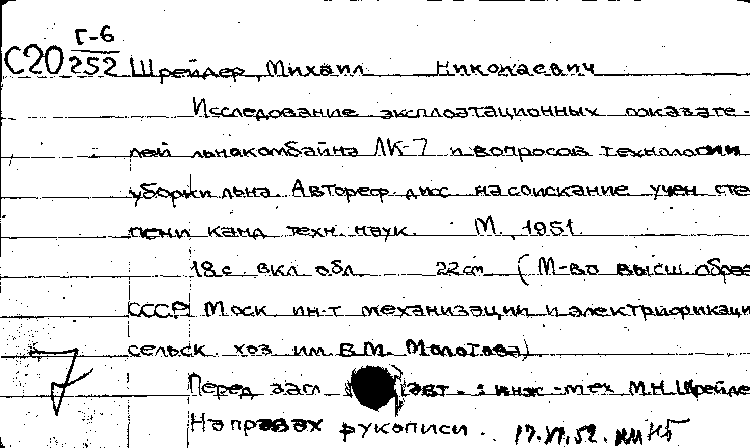 С20 Г-6
252 Шрейдер, Михаил Николаевич
Исследование эксплоатационных показате-
лей льнокомбайна ЛК-7 и вопросов технологии
уборки льна. Автореф. дисс. на соискание учен. сте
пени канд. техн. наук. М., 1951.
18 с. вкл. обл. 22 см (М-во высш. образ
СССР. Моск. ин-т механизации и электрификаци
сельск. хоз. им. В.М. Молотова)
Перед загл. авт.: инж.-мех. М.Н. Шрейде
На правах рукописи.